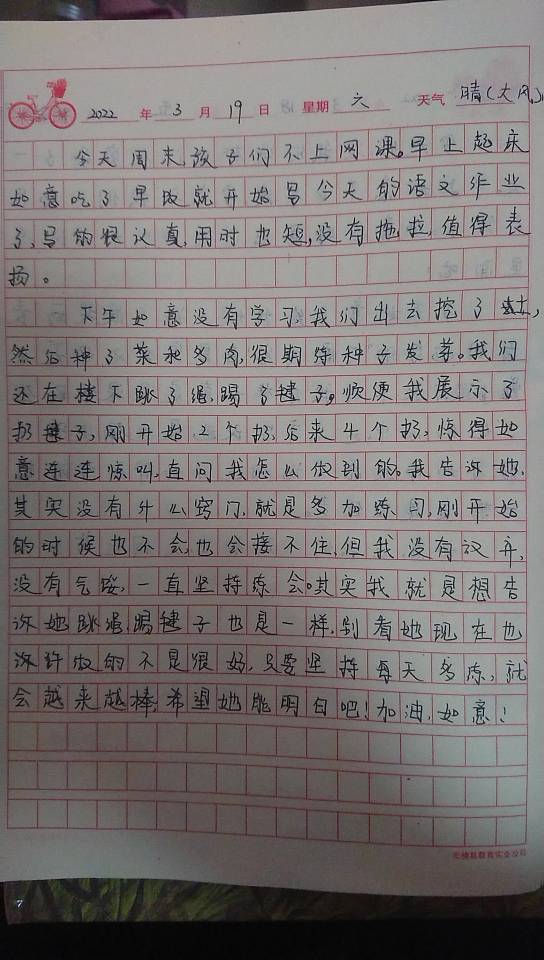 2022 年 3 月 19 日 星期 六 天气 晴(大风)
今天周末,孩子们不上网课。早上起床
如意吃了早饭就开始写今天的语文作业
了,写的很认真,用时也短,没有拖拉,值得表
扬。
下午如意没有学习,我们出去挖了土,
然后种了菜和多肉,很期待种子发芽。我们
还在楼下跳了绳,踢了毽子。顺便我展示了
扔毽子,刚开始2个扔,后来4个扔,惊得如
意连连惊叫,直问我怎么做到的。我告诉她,
其实没有什么窍门,就是多加练习,刚开始
的时候也不会,也会接不住,但我没有放弃,
没有气馁,一直坚持练会。其实我就是想告
诉她跳绳踢毽子也是一样,别看她现在也
许做的不是很好,只要坚持每天多练,就
会越来越棒,希望她能明白吧!加油,如意!